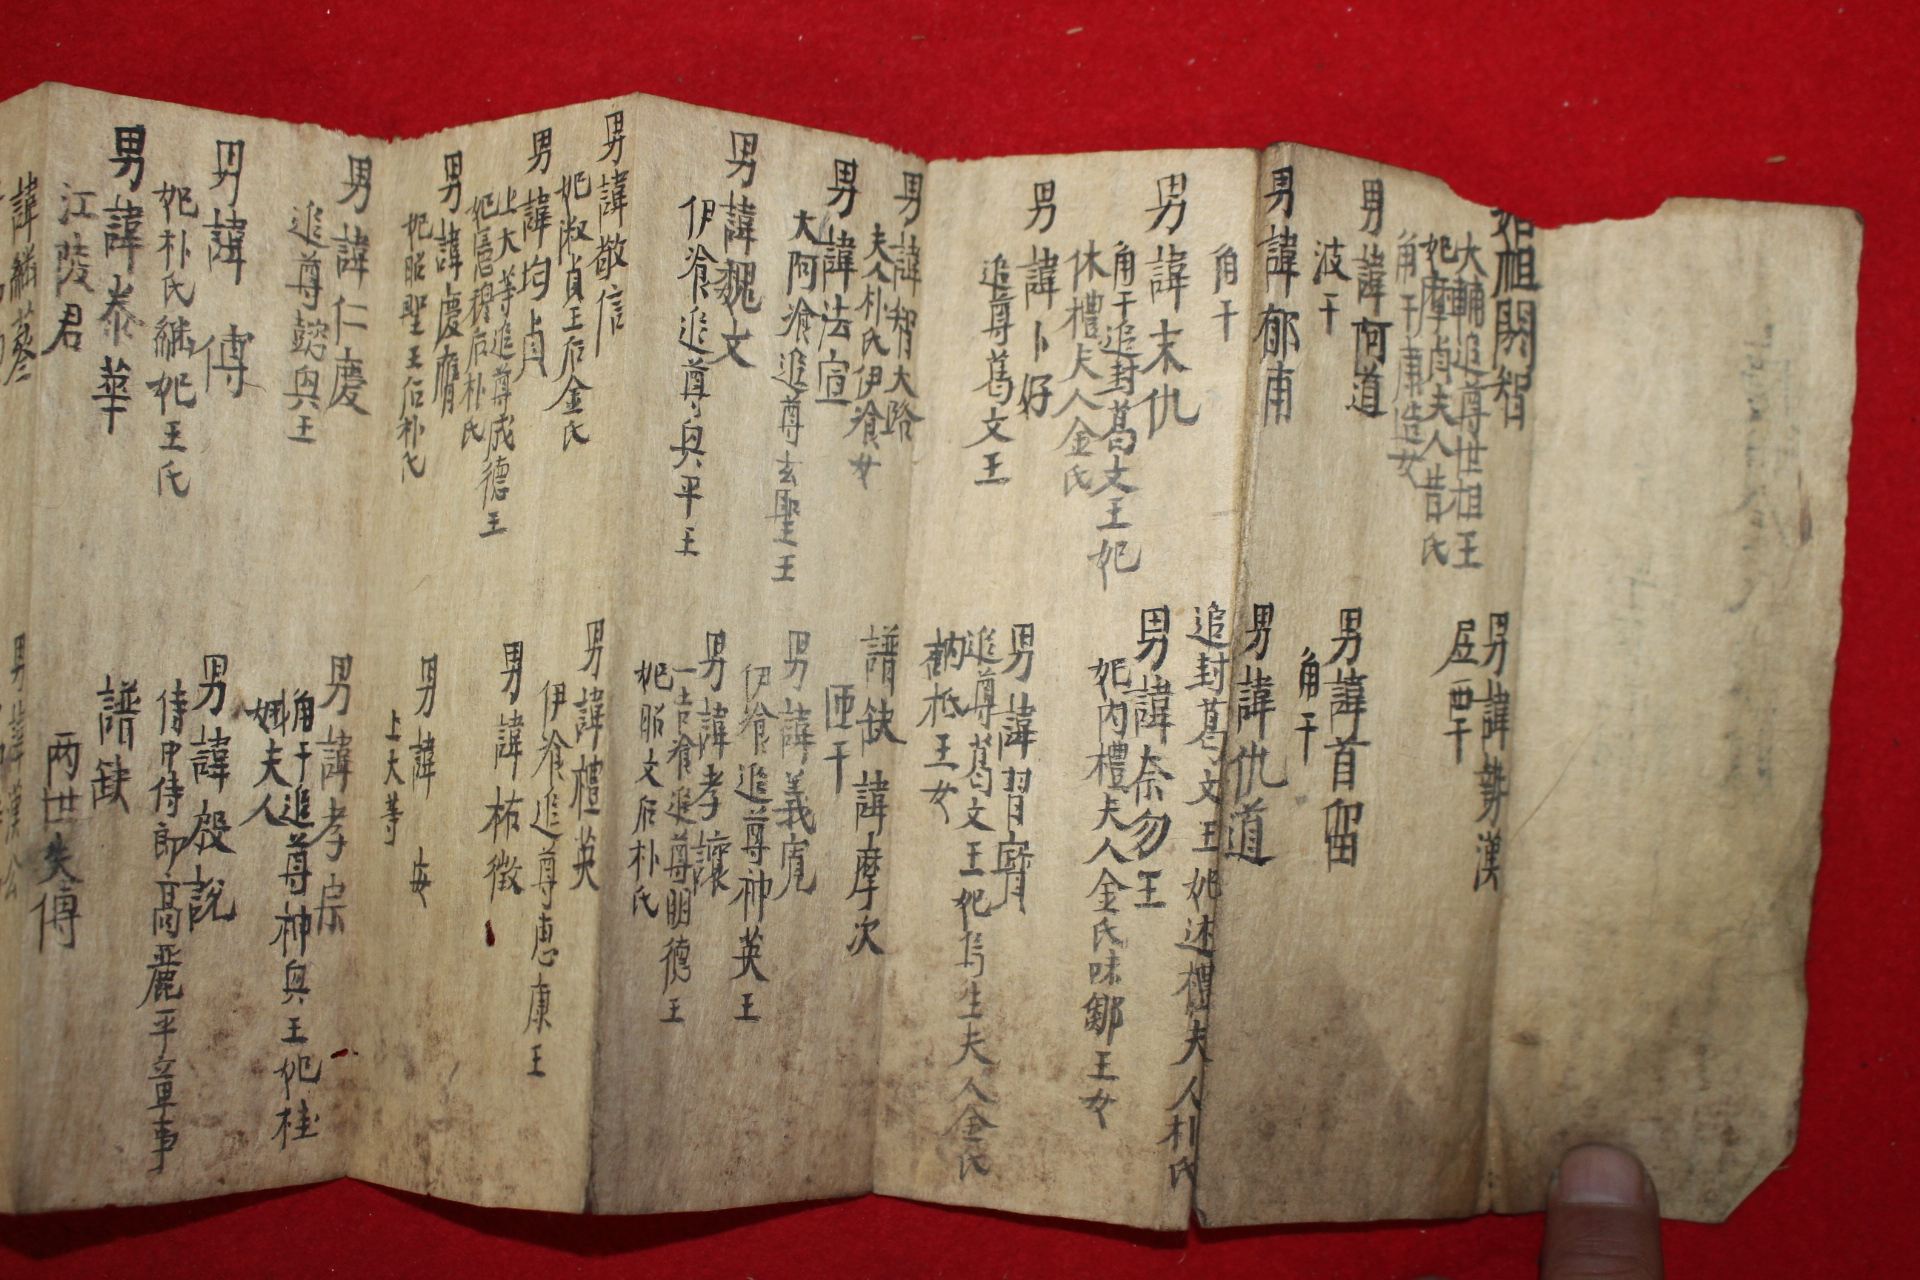 始祖閼智
大輔追尊世祖王
妃摩貞夫人昔氏
角干康造女
男諱勢漢
男諱阿道
波干
男諱首留
角干
男諱郁甫
角干
男諱仇道
追封葛文王妃述禮夫人朴氏
男諱末仇
角干追封葛文王妃
休禮夫人金氏
男諱奈勿王
妃內禮夫人金氏味鄒王女
男諱卜好
追尊葛文王
男諱習寶
追尊葛文王妃鳥生夫人金氏
訥祗王女
男諱智大路
夫人朴氏伊飡女
譜缺 諱摩次
匝干
男諱法宣
大阿飡追尊玄聖王
男諱義寬
伊飡追尊神英王
男諱魏文
伊飡追尊興平王
男諱孝讓
一吉飡追尊明德王
妃昭文后朴氏
男諱敬信
妃淑貞王后金氏
男諱禮英
伊飡追尊惠康王
男諱均貞
上大等追尊成德王
妃憲穆后朴氏
男諱祐徵
男諱慶膺
妃昭聖王后朴氏
男諱 安
上大等
男諱仁慶
追尊懿興王
男諱孝宗
角干追尊神興王妃桂
娥夫人
男諱傅
妃朴氏繼妃王氏
男諱殷說
侍中侍郎高麗平章事
男諱泰華
江陵君
譜缺
兩世失傳